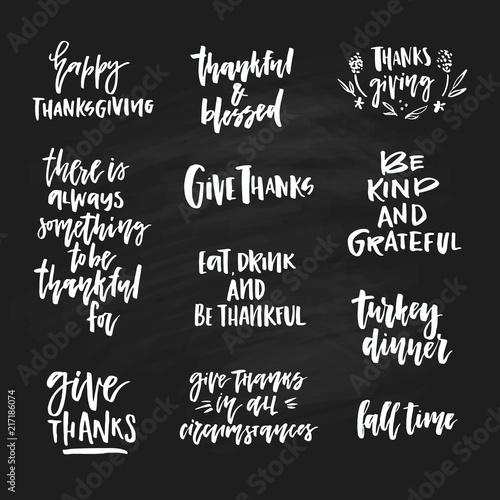 happy
THANKSGIVING
thankful
&
blessed
THANKS
giving
there is
always
something
to be
thankful
for
GIVE THANKS
BE
KIND
AND
GRATEFUL
EAT, DRINK
AND
BE THANKFUL
turkey
dinner
give
THANKS
give thanks
in all
circumstances
fall time
Adobe Stock | #217186074